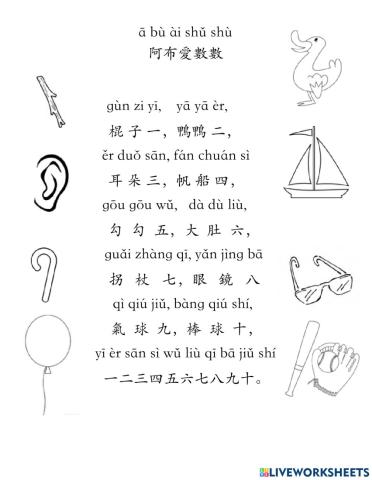 ā bù ài shǔ shù
阿布愛數數
gùn zi yī, yā yā èr,
棍子一, 鴨鴨二,
ěr duǒ sān, fán chuán sì
耳朵三, 帆船四,
gōu gōu wǔ, dà dù liù,
勾勾五, 大肚六,
guǎi zhàng qī, yǎn jìng bā
拐杖七, 眼鏡八
qì qiú jiǔ, bàng qiú shí,
氣球九, 棒球十,
yī èr sān sì wǔ liù qī bā jiǔ shí
一二三四五六七八九十。
LIVEWORKSHEETS